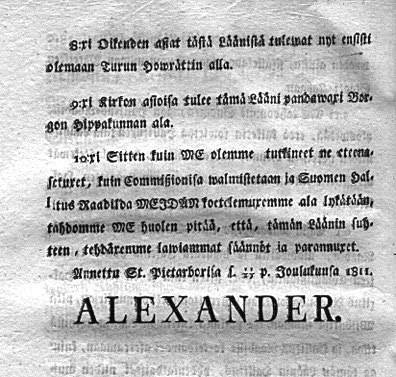 8:xi Oikenden asiat tästä Läänistä tulewat nyt ensisti
olemaan Turun Howrättin alla.
9:xi Kirkon asioisa tulee tämä Lääni pandawaxi Bor-
gon Hippakunnan ala.
10:xi Sitten kuin ME olemme tutkineet ne eteena-
setuxet, kuin Commißionisa walmistetaan ja Suomen Hal-
litus Raadilda MEIDÄN koetelemuxemme ala lykätään,
tahdomme ME huolen pitää, että, tämän Läänin suh-
teen, tehdäxemme lawiammat säännöt ja parannuxet.
Annettu St. Pietarborisa s. p. Joulukunsa 1811.
ALEXANDER.